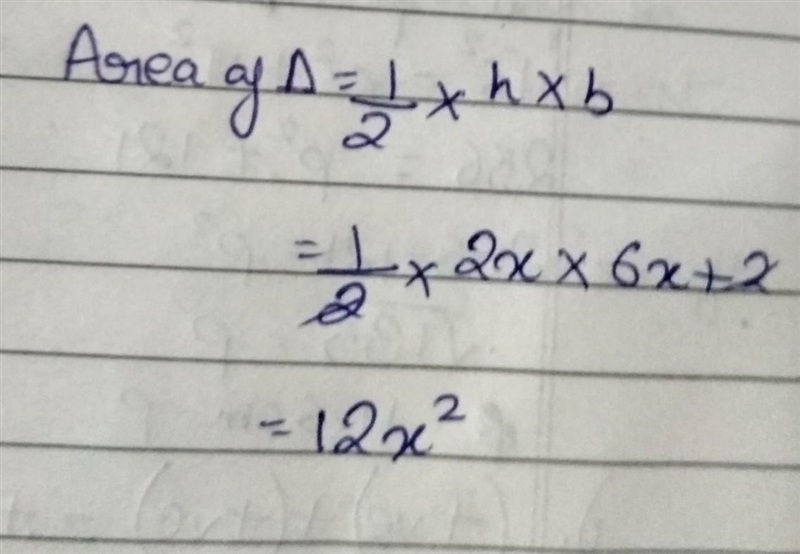 Area of Δ = 1/2 × h × b
= 1/2 × 2x × 6x + 2
= 12x²